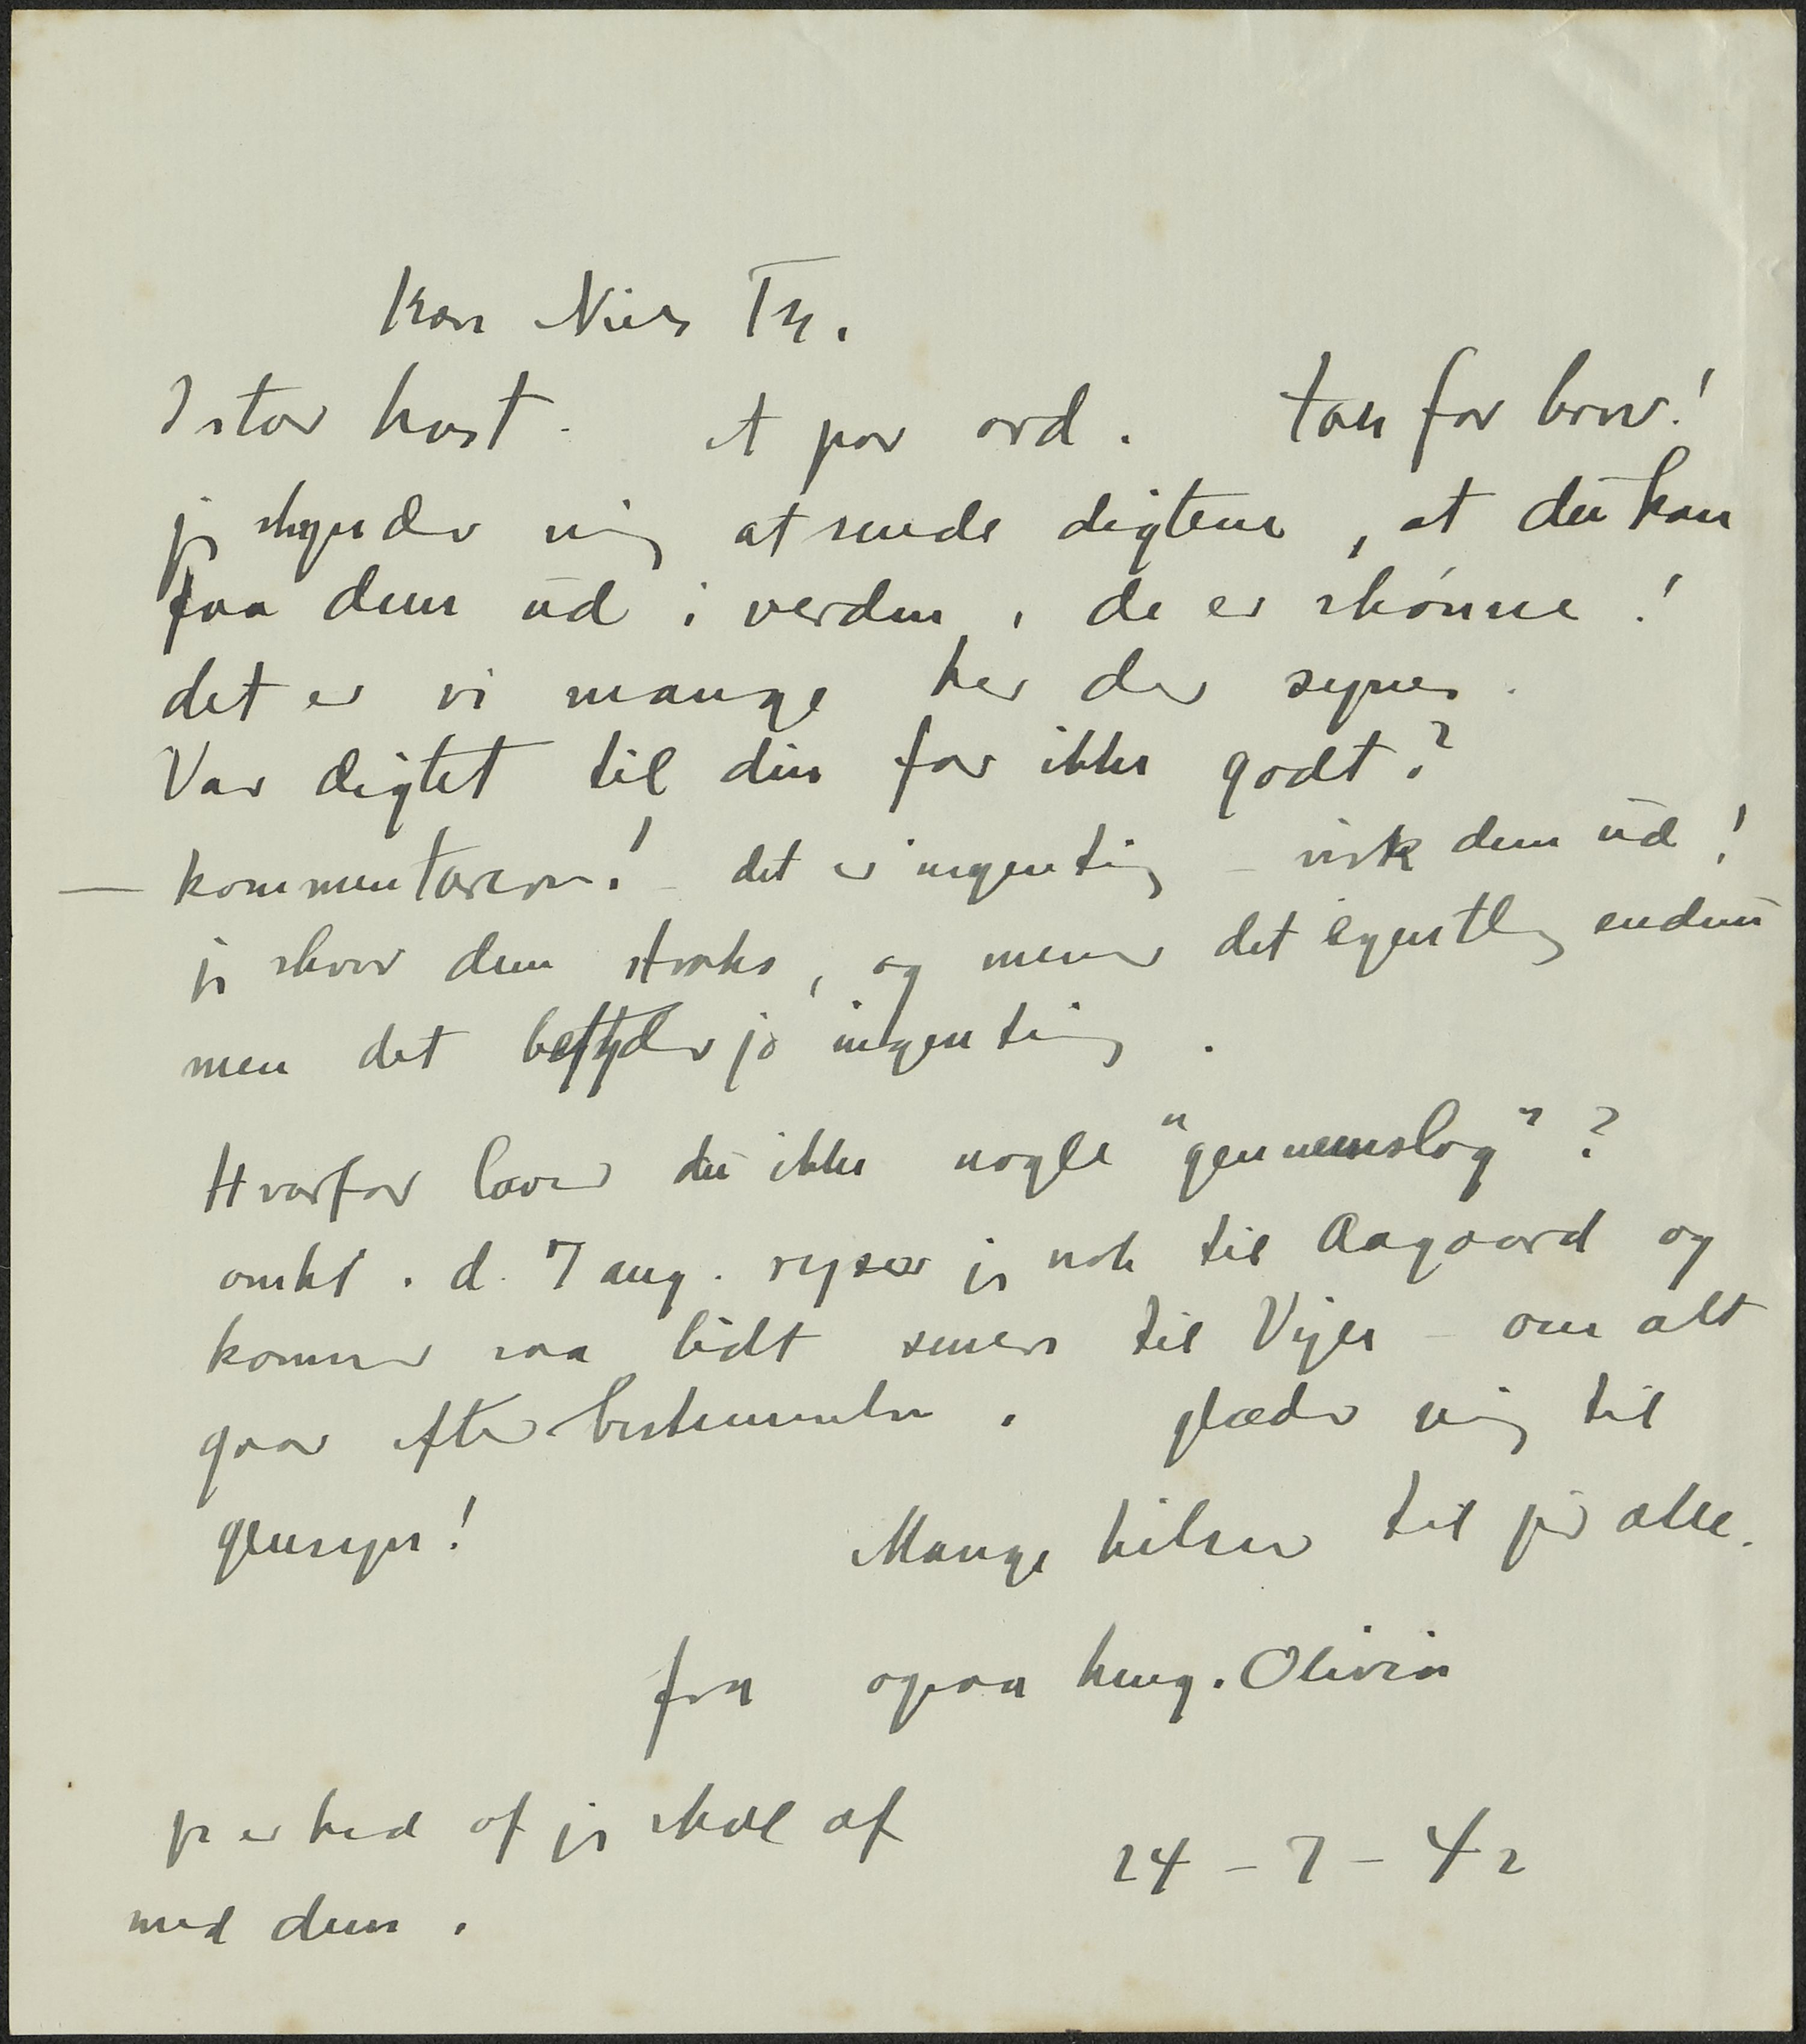 Kære Niels Th.
I stor hast. et par ord. tak for brev!
jeg skynder mig at sende digtene, at du kan
faa dem ud i verden, de er skønne!
det er vi mange her der synes.
Var digtet til din far ikke godt?
— kommentarerne! – det er ingenting – visk dem ud!
jeg skrev dem straks, og mener det egentlig endnu
men det betyder jo ingenting.
Hvorfor laver du ikke nogle "gennemslag"?
omkt. d. 7 aug. rejser jeg nok til Aagaard og
kommer saa lidt senere til Vejle – om alt
gaar efter bestemmelse. glæder mig til
gensyn! Mange hilsener til jer alle.
fra ogsaa heng. Olivia
jeg er ked af jeg skal af
med dem. 24 – 7 – 42